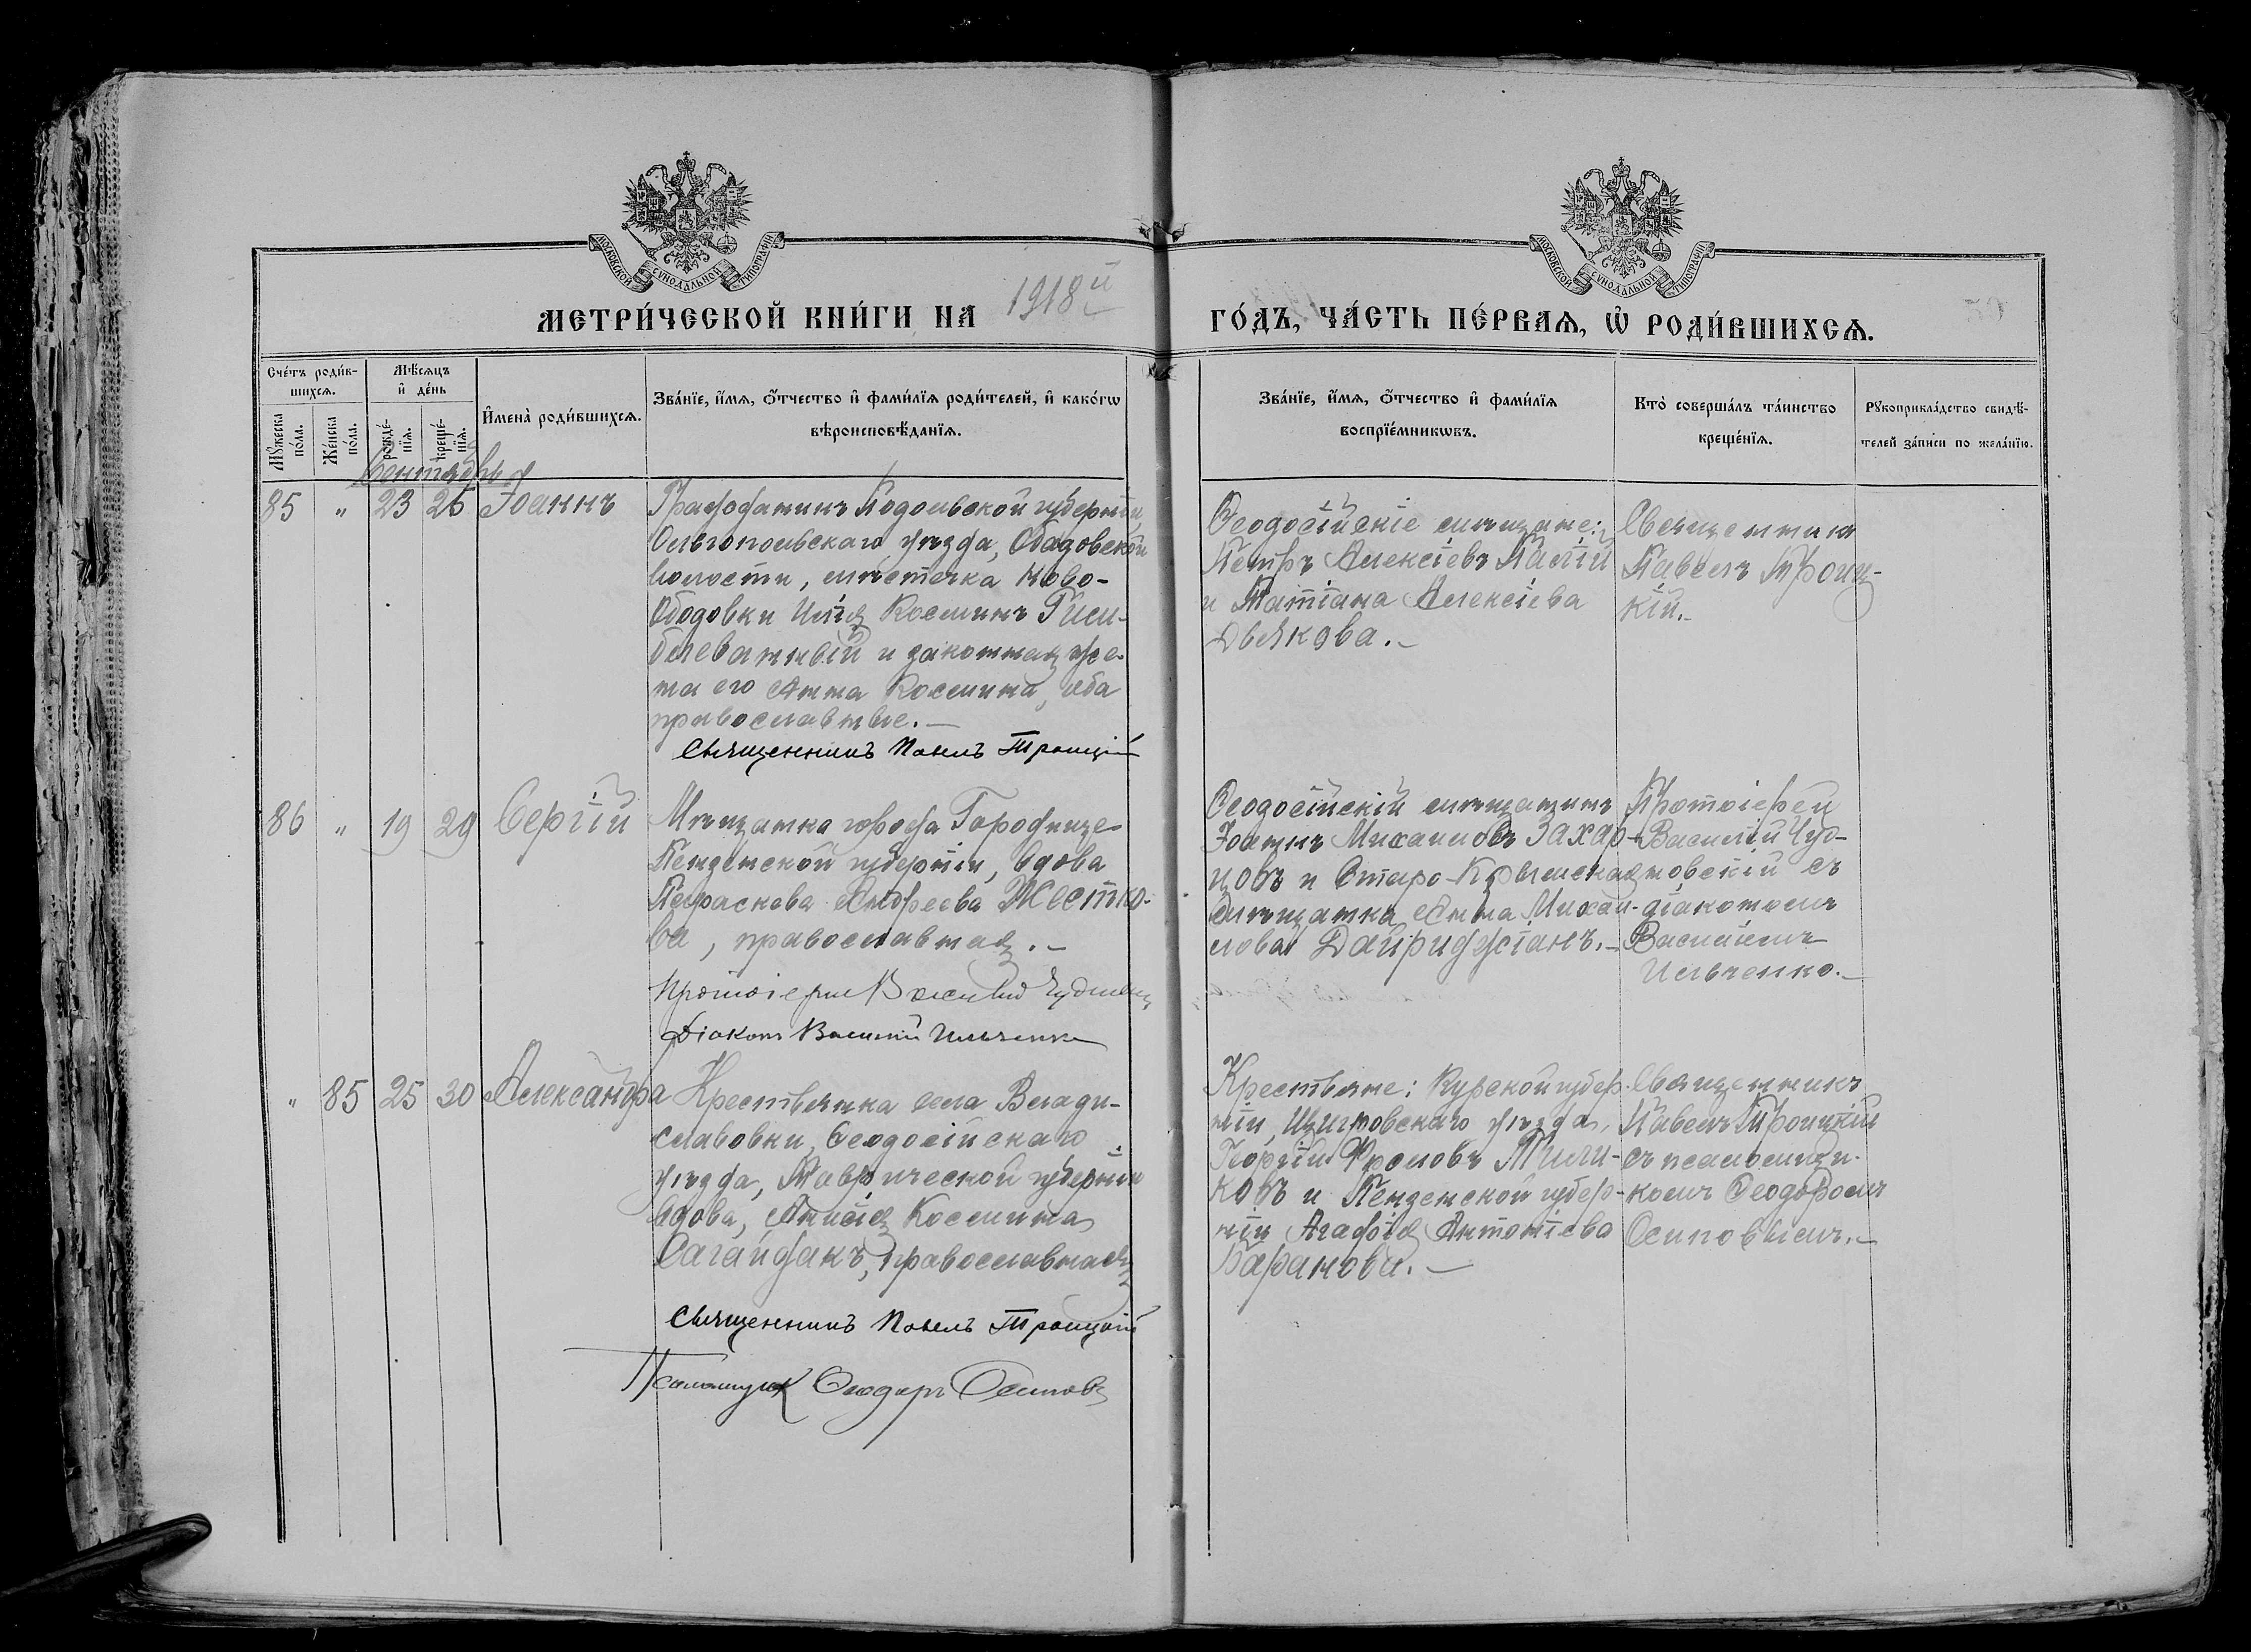 МОСКОВСКОЙ СУНОДАЛЬНОЙ ТИПОГРАФІИ
МОСКОВСКОЙ СУНОДАЛЬНОЙ ТИПОГРАФІИ
МЕТРИ́ЧЕСКОЙ КНИ́ГИ НА 1918й ГО́ДЪ, ЧА́СТЬ ПЕ́РВАЯ, Ѡ РОДИ́ВШИХСѦ.
Сче́тъ роди́в-
шихсѧ.
Мꙋ́жеска по́ла.
Же́нска по́ла.
Мѣ́сѧцъ
и҆ де́нь
рожде́-
нїѧ.
креще́-
нїѧ.
И҆мена̀ роди́вшихсѧ.
Зва́нїе, и҆́мѧ, ѻ҆́тчество и҆ фами́лїѧ роди́телей, и҆ како́гѡ
вѣроисповѣ́данїѧ.
Зва́нїе, и҆́мѧ, ѻ҆́тчество и҆ фами́лїѧ
воспрїе́мникѡвъ.
Кто̀ соверша́лъ та́инство
креще́нїѧ.
Рꙋкоприкла́дство свидѣ́-
телей за́писи по жела́нїю.
Сентябрь
85 " 23 26 Іоаннъ
Гражданинъ Подольской губерніи,
Ольгопольскаго уѣзда, Ободовской
волости, мѣстечка Ново-
Ободовки Илія Косминъ
и законная же-
на его Анна Космина, оба
православные.-
Священникъ Павелъ Троицкій
Ѳеодосійскіе мѣщане:
Петръ Алексіевъ Палій
и Татіана Алексіева
Дьякова.-
Священникъ
Павелъ Троиц-
кій.-
86 " 19 29 Сергій
Мѣщанка города Городище
Пензенской губерніи, вдова
Параскева Андреева Жестко-
ва, православная.-
Протоіерей Василій
Діаконъ Василій Ильченко
Ѳеодосійскій мѣщанинъ
Іоаннъ Михаиловъ Захар-
цовъ и Старо-Крымская
мѣщанка Анна Михаи-
лова Дайриджіанъ.-
Протоіерей
Василій Чуд-
новскій съ
діакономъ
Василіемъ
Ильченко.-
" 85 25 30 Александра
Крестьянка села Влади-
славовки, Ѳеодосійскаго
уѣзда, Таврической губерніи
вдова, Анисія Космина
Сагайдакъ, православная
Священникъ Павелъ Троицкій
Псаломщикъ Ѳеодоръ Осиповъ
Крестьяне: Курской губер-
ніи, Щигровскаго уѣзда,
Георгій Фроловъ
и Пензенской губер-
ніи Агафія Антоніева
Баранова.-
Священникъ
Павелъ Троицкій
съ псаломщи-
комъ Ѳеодоромъ
Осиповымъ.-